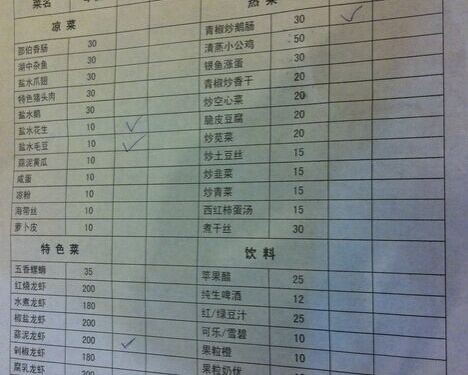 菜名
热菜
凉菜
青椒炒鹅肠 30
邵伯香肠 30
清蒸小公鸡 50
湖中杂鱼 30
银鱼涨蛋 30
盐水爪翅 30
青椒炒香干 20
特色猪头肉 30
炒空心菜 20
盐水鹅 30
脆皮豆腐 20
盐水花生 10
炒苋菜 20
盐水毛豆 10
炒土豆丝 15
蒜泥黄瓜 10
炒韭菜 15
咸蛋 10
炒青菜 15
凉粉 10
西红柿蛋汤 15
海带丝 10
煮干丝 30
萝卜皮 10
特色菜
饮料
五香螺蛳 35
苹果醋 25
红烧龙虾 200
纯生啤酒 12
水煮龙虾 180
红/绿豆汁 25
椒盐龙虾 200
可乐/雪碧 10
蒜泥龙虾 200
果粒橙 10
剁椒龙虾 180
果粒奶优 10
腐乳龙虾 200